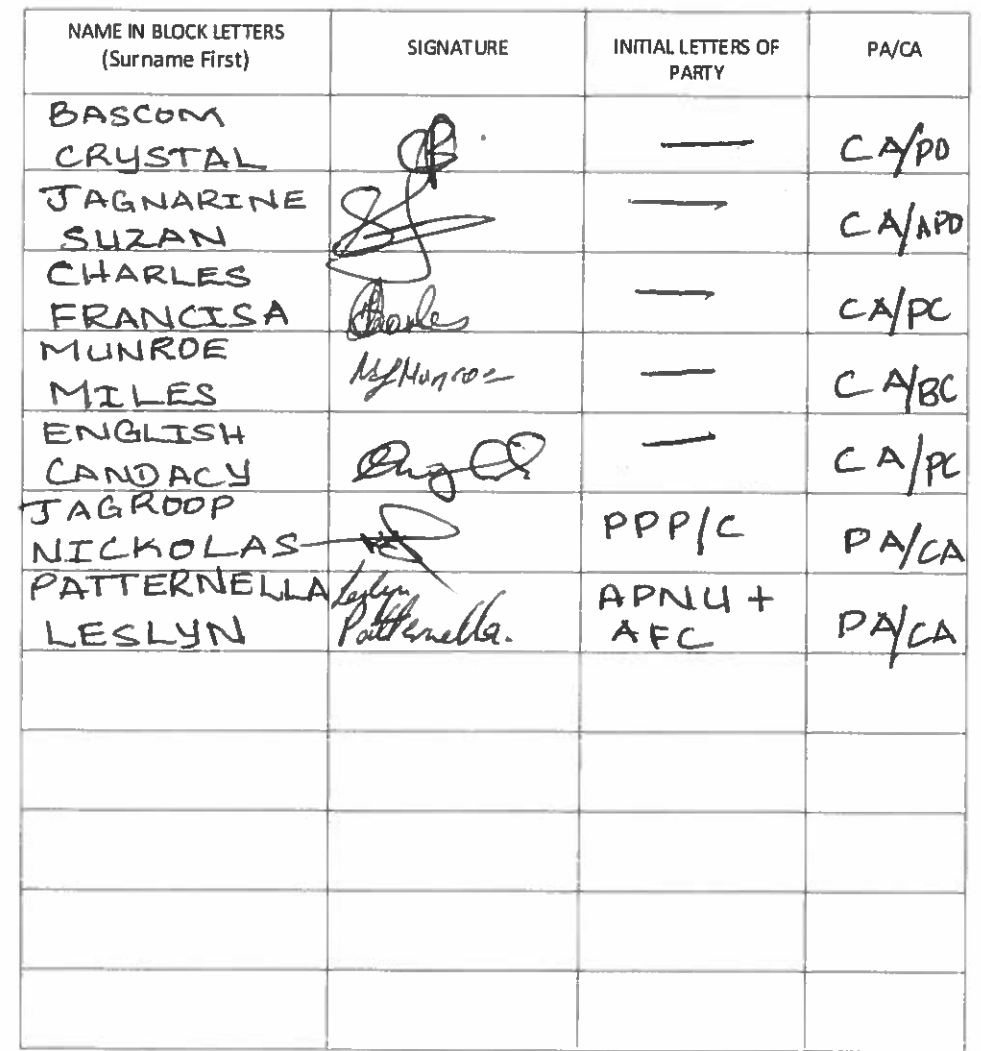 NAME IN BLOCK LETTERS
(Surname First)
SIGNATURE
INITIAL LETTERS OF
PARTY
PA/CA
BASCOM
CRYSTAL
—
CA/PO
JAGNARINE
SUZAN
—
CA/APO
CHARLES
FRANCISA
Charles
—
CA/PC
MUNROE
MILES
Munroe
—
CA/BC
ENGLISH
CANDACY
—
CA/PC
JAGROOP
NICKOLAS
PPP/C
PA/CA
PATTERNELLA
LESLYN
Leslyn
Patternella.
APNU +
AFC
PA/CA